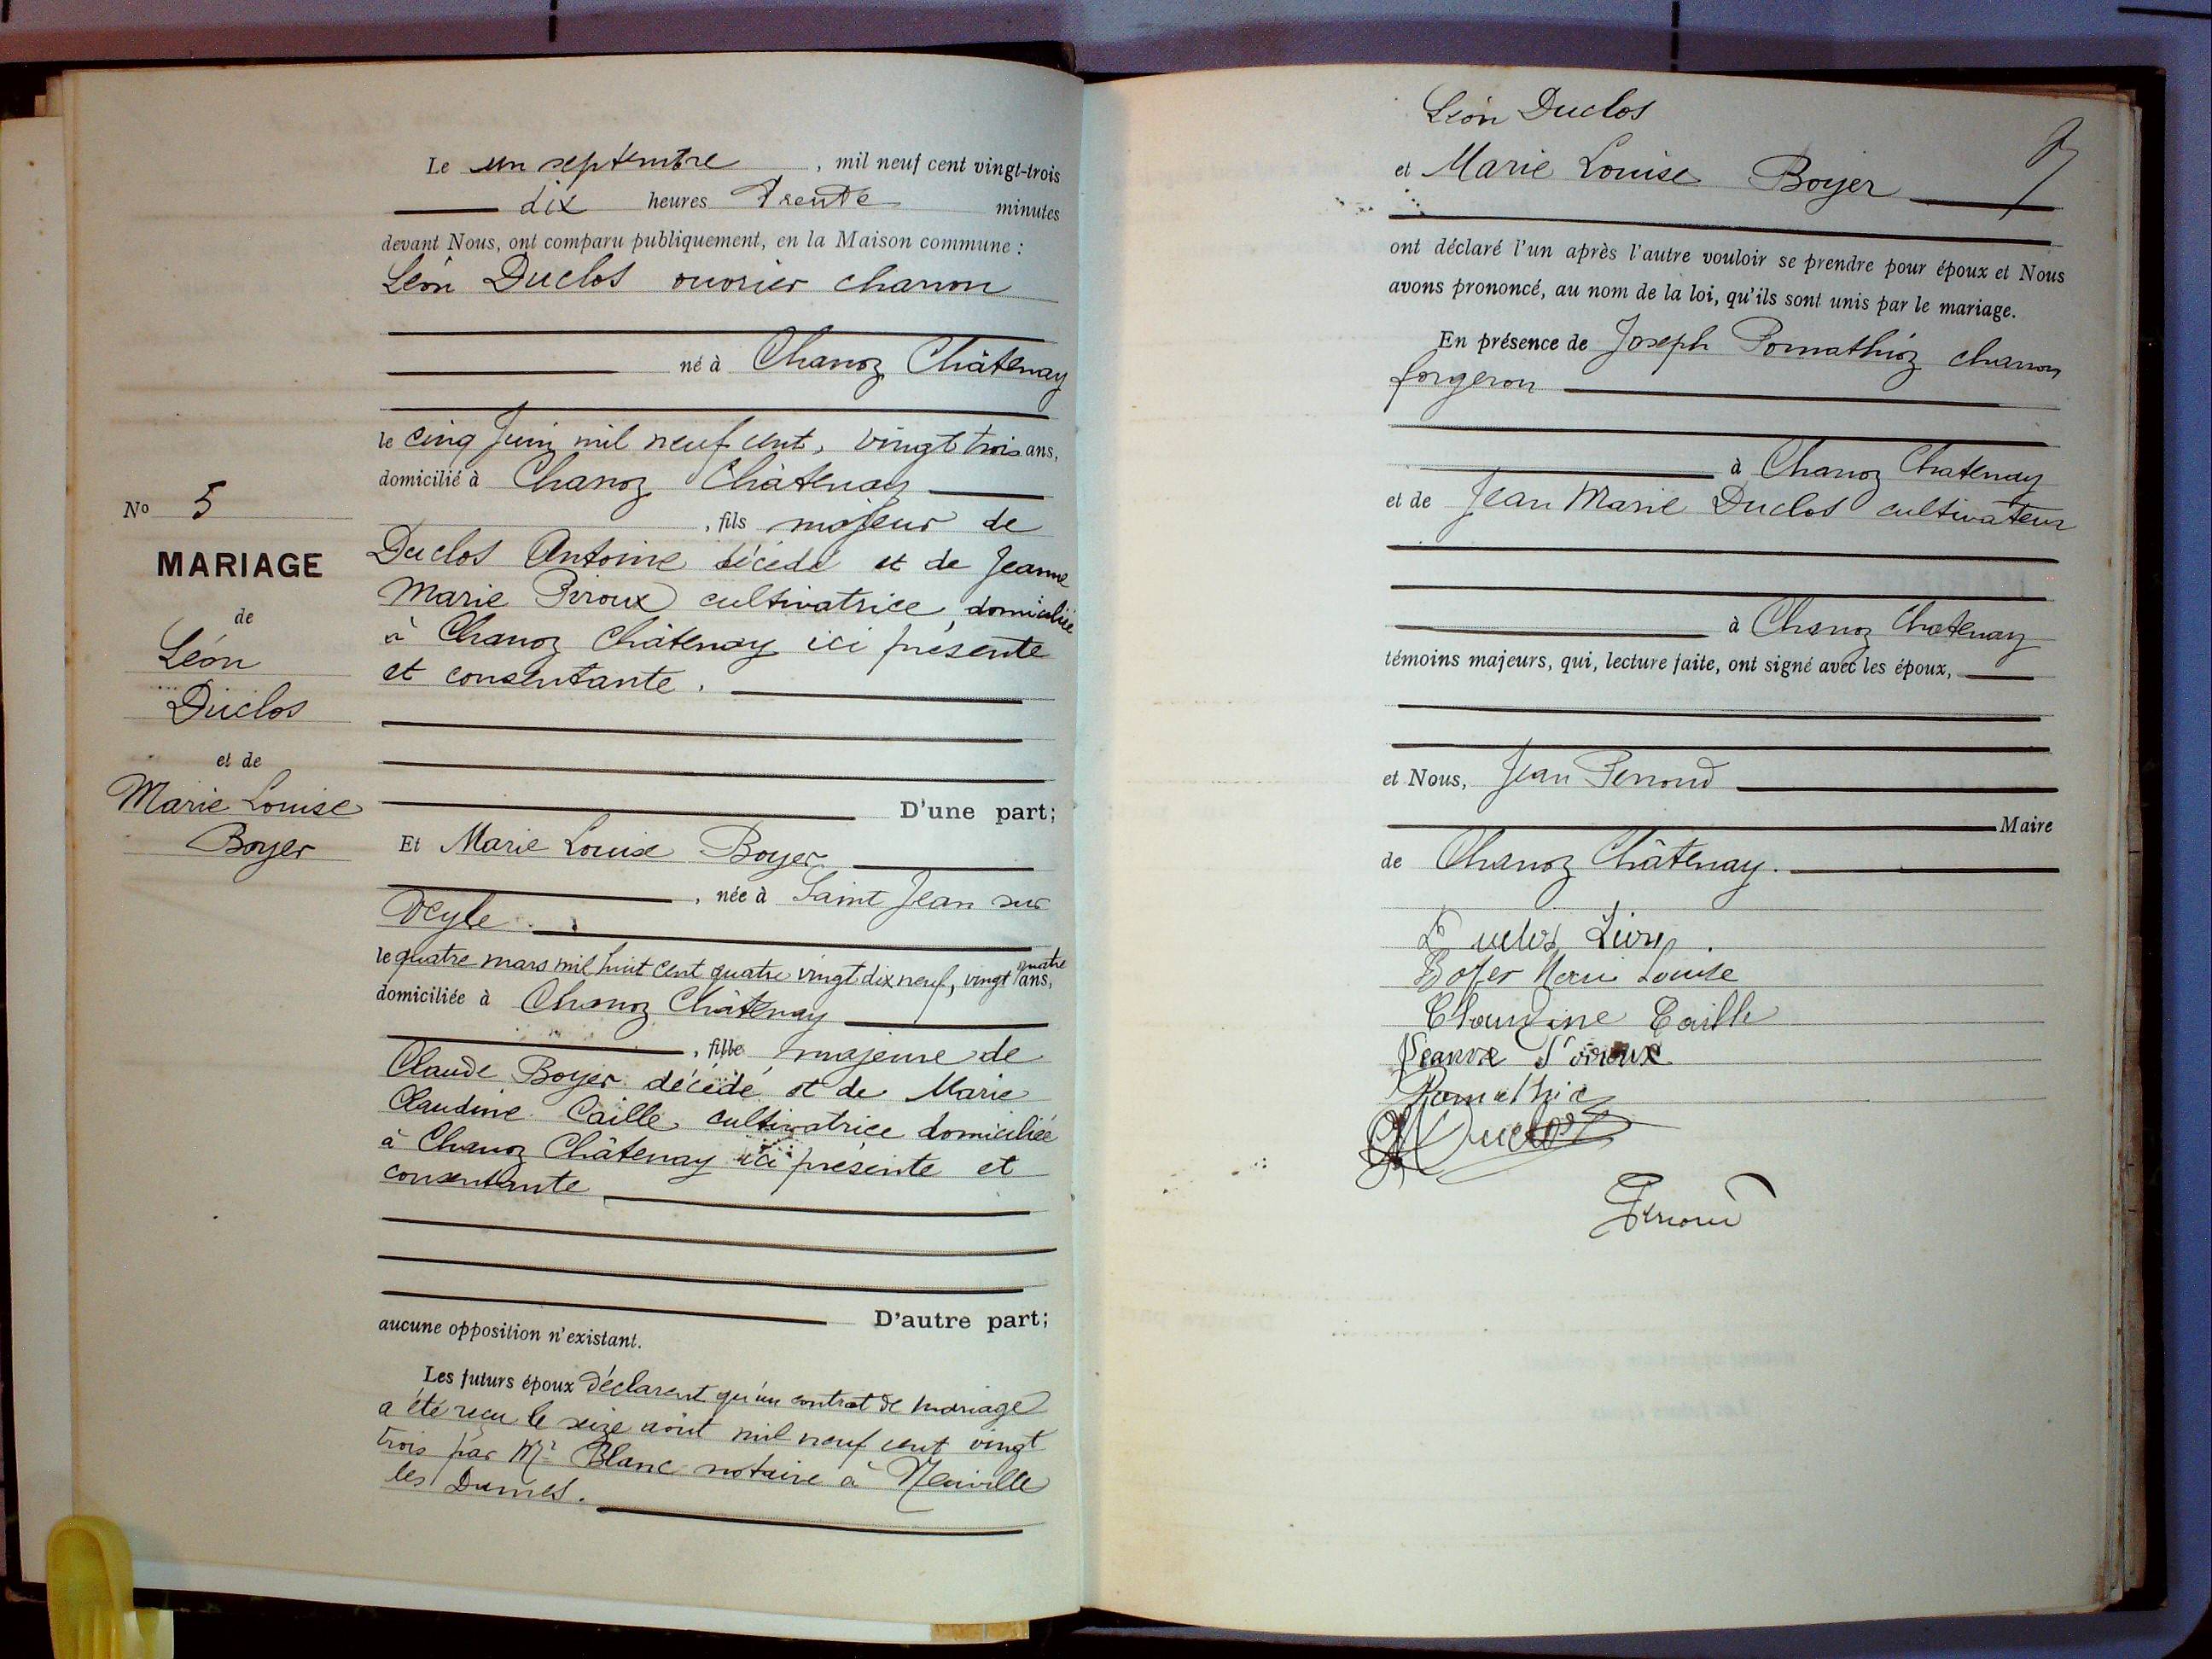 Le un septembre, mil neuf cent vingt-trois
dix heures trente minutes
devant Nous, ont comparu publiquement, en la Maison commune :
Léon Duclos ouvrier charron
né à Chanoz Châtenay
le cinq Juin mil neuf cent, vingt trois ans,
domicilié à Chanoz Châtenay
, fils majeur de
Duclos Antoine décédé et de Jeanne
Marie Piroux cultivatrice, domiciliée
à Chanoz Châtenay ici présente
et consentante.
D'une part;
Et Marie Louise Boyer
, née à Saint Jean sur
Veyle.
le quatre mars mil huit cent quatre vingt dix neuf, vingt quatre ans,
domiciliée à Chanoz Châtenay
, fille majeure de
Claude Boyer décédé et de Marie
Claudine Caille, cultivatrice domiciliée
à Chanoz Châtenay ici présente et
consentante
D'autre part;
aucune opposition n'existant.
Les futurs époux déclarent qu'un contrat de mariage
a été reçu le seize août mil neuf cent vingt
trois par Me Blanc notaire à Neuville
les Dames.
No 5
MARIAGE
de
Léon
Duclos
et de
Marie Louise
Boyer
Léon Duclos
et Marie Louise Boyer
ont déclaré l'un après l'autre vouloir se prendre pour époux et Nous
avons prononcé, au nom de la loi, qu'ils sont unis par le mariage.
En présence de Joseph Pomathioz charron
forgeron
à Chanoz Chatenay
et de Jean Marie Duclos cultivateur
à Chanoz Chatenay
témoins majeurs, qui, lecture faite, ont signé avec les époux,
et Nous, Jean Perroud
Maire
de Chanoz Châtenay.
Duclos Léon.
Boyer Marie Louise
Claudine Caille
Jeanne Piroux
Pomathioz
Duclos
Perroud